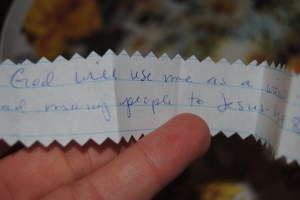 God will use me as a
many people to Jesus